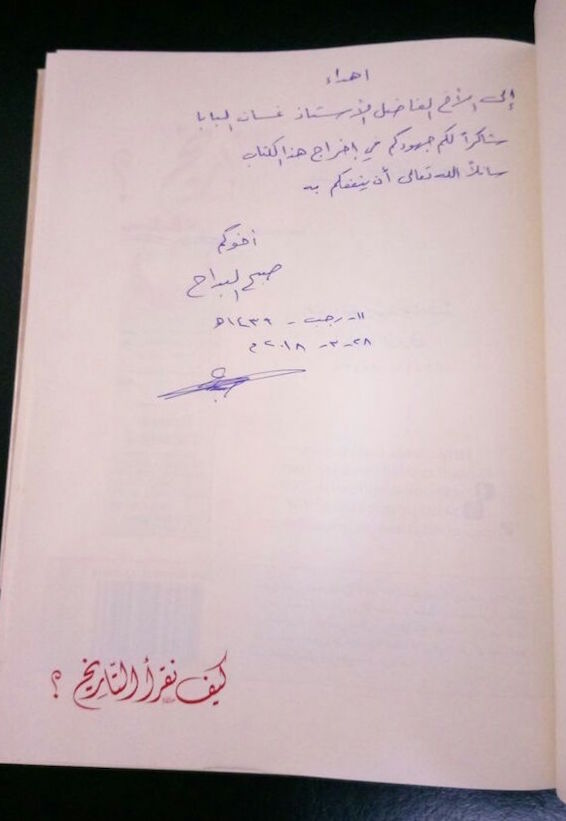 اهداء
إلى الأخ الفاضل الأستاذ غسان البابا
شاكراً لكم جهودكم في إخراج هذا الكتاب
سائلاً الله تعالى أن ينفعكم به
أخوكم
صبح البداح
١١- رجب - ١٤٣٩هـ
٢٨-٣- ٢٠١٨م
كيف نقرأ التاريخ ؟